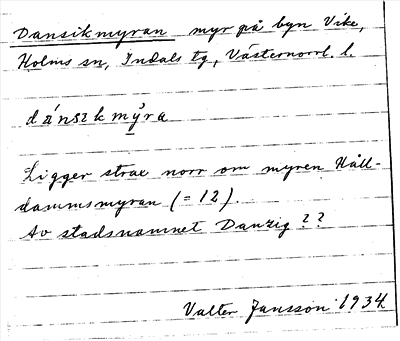 Dansikmyran myr på byn Vike,
Holms sn, Indals tg, Västernorrl. l.
dánsikmy̌ra
Ligger strax norr om myren Håll-
dammsmyran (= 12).
Av stadsnamnet Danzig??
Valter Jansson 1934